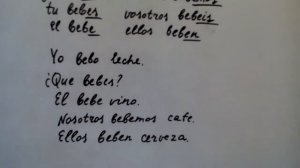 tu bebes vosotros bebeis
el bebe ellos beben
Yo bebo leche.
¿Que bebes?
El bebe vino.
Nosotros bebemos cafe.
Ellos beben cerveza.